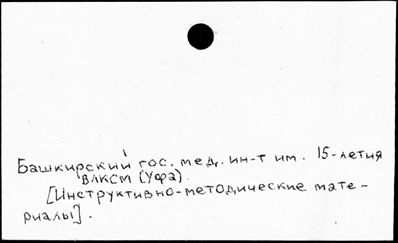 Башкирский гос. мед. ин-т им. 15-летия
ВЛКСМ (Уфа)
[Инструктивно-методические мате-
риалы].